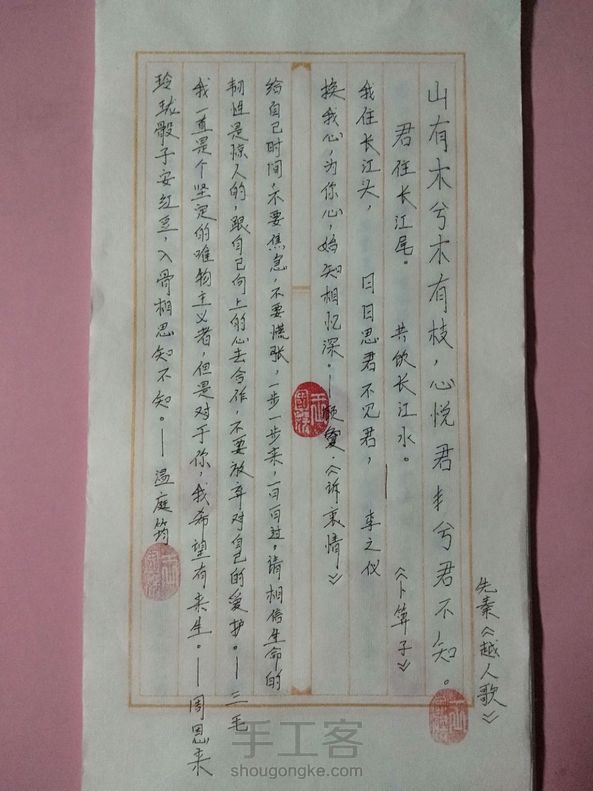 山有木兮木有枝，心悦君兮君不知。
先秦《越人歌》
君住长江尾。 共饮长江水。 《卜算子》
我住长江头， 日日思君不见君， 李之仪
换我心，为你心，始知相忆深。—顾夐.《诉衷情》
给自己时间，不要焦急，不要慌张，一步一步来，一日日过。请相信生命的
韧性是惊人的，跟自己向上的心去合作，不要放弃对自己的爱护。—三毛
我一直是个坚定的唯物主义者，但是对于你，我希望有来生。—周恩来
玲珑骰子安红豆，入骨相思知不知。—温庭筠
手工客
shougongke.com